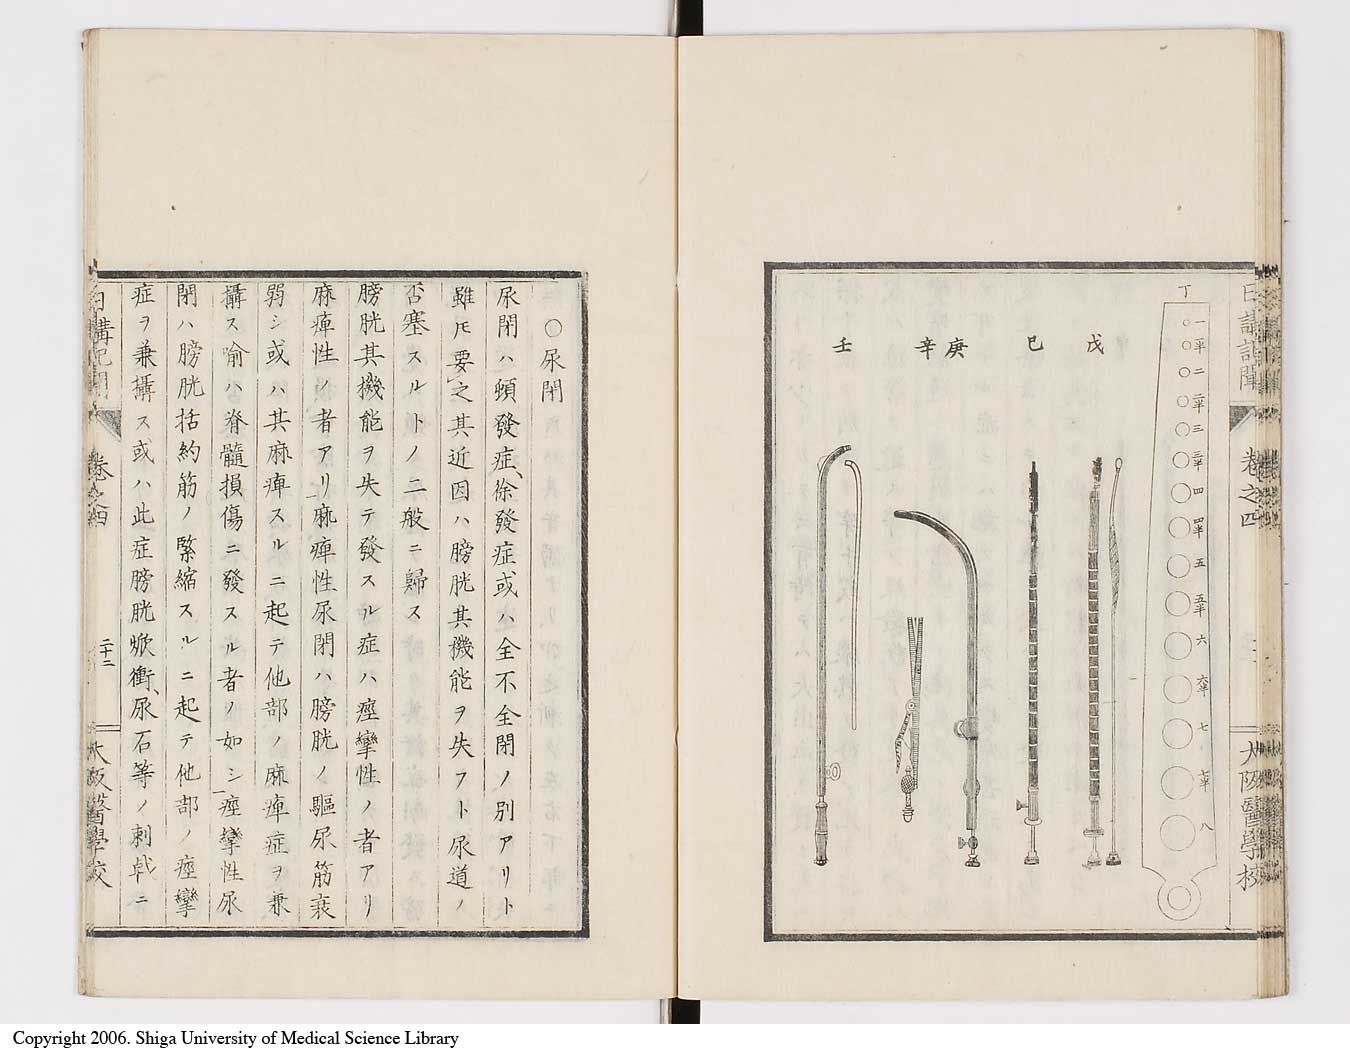 日講記聞
卷之四
大阪醫學校
丁
一
一半
二
二半
三
三半
四
四半
五
五半
六
六半
七
七半
八
戊
巳
庚
辛
壬
〇尿閉
尿閉ハ頓發症、徐發症或ハ全不全閉ノ別アリト
雖𪜈要之其近因ハ膀胱其機能ヲ失フト尿道ノ
否塞スルトノ二般ニ歸ス
膀胱其機能ヲ失テ發スル症ハ痙攣性ノ者アリ
麻痺性ノ者アリ麻痺性尿閉ハ膀胱ノ驅尿筋衰
弱シ或ハ其麻痺スルニ起テ他部ノ麻痺症ヲ兼
攝ス喻ハ脊髓損傷ニ發スル者ノ如シ痙攣性尿
閉ハ膀胱括約筋ノ緊縮スルニ起テ他部ノ痙攣
症ヲ兼攝ス或ハ此症膀胱焮衝、尿石等ノ刺戟ニ
日講記聞
卷之四
二十二
大阪醫學校
Copyright 2006. Shiga University of Medical Science Library